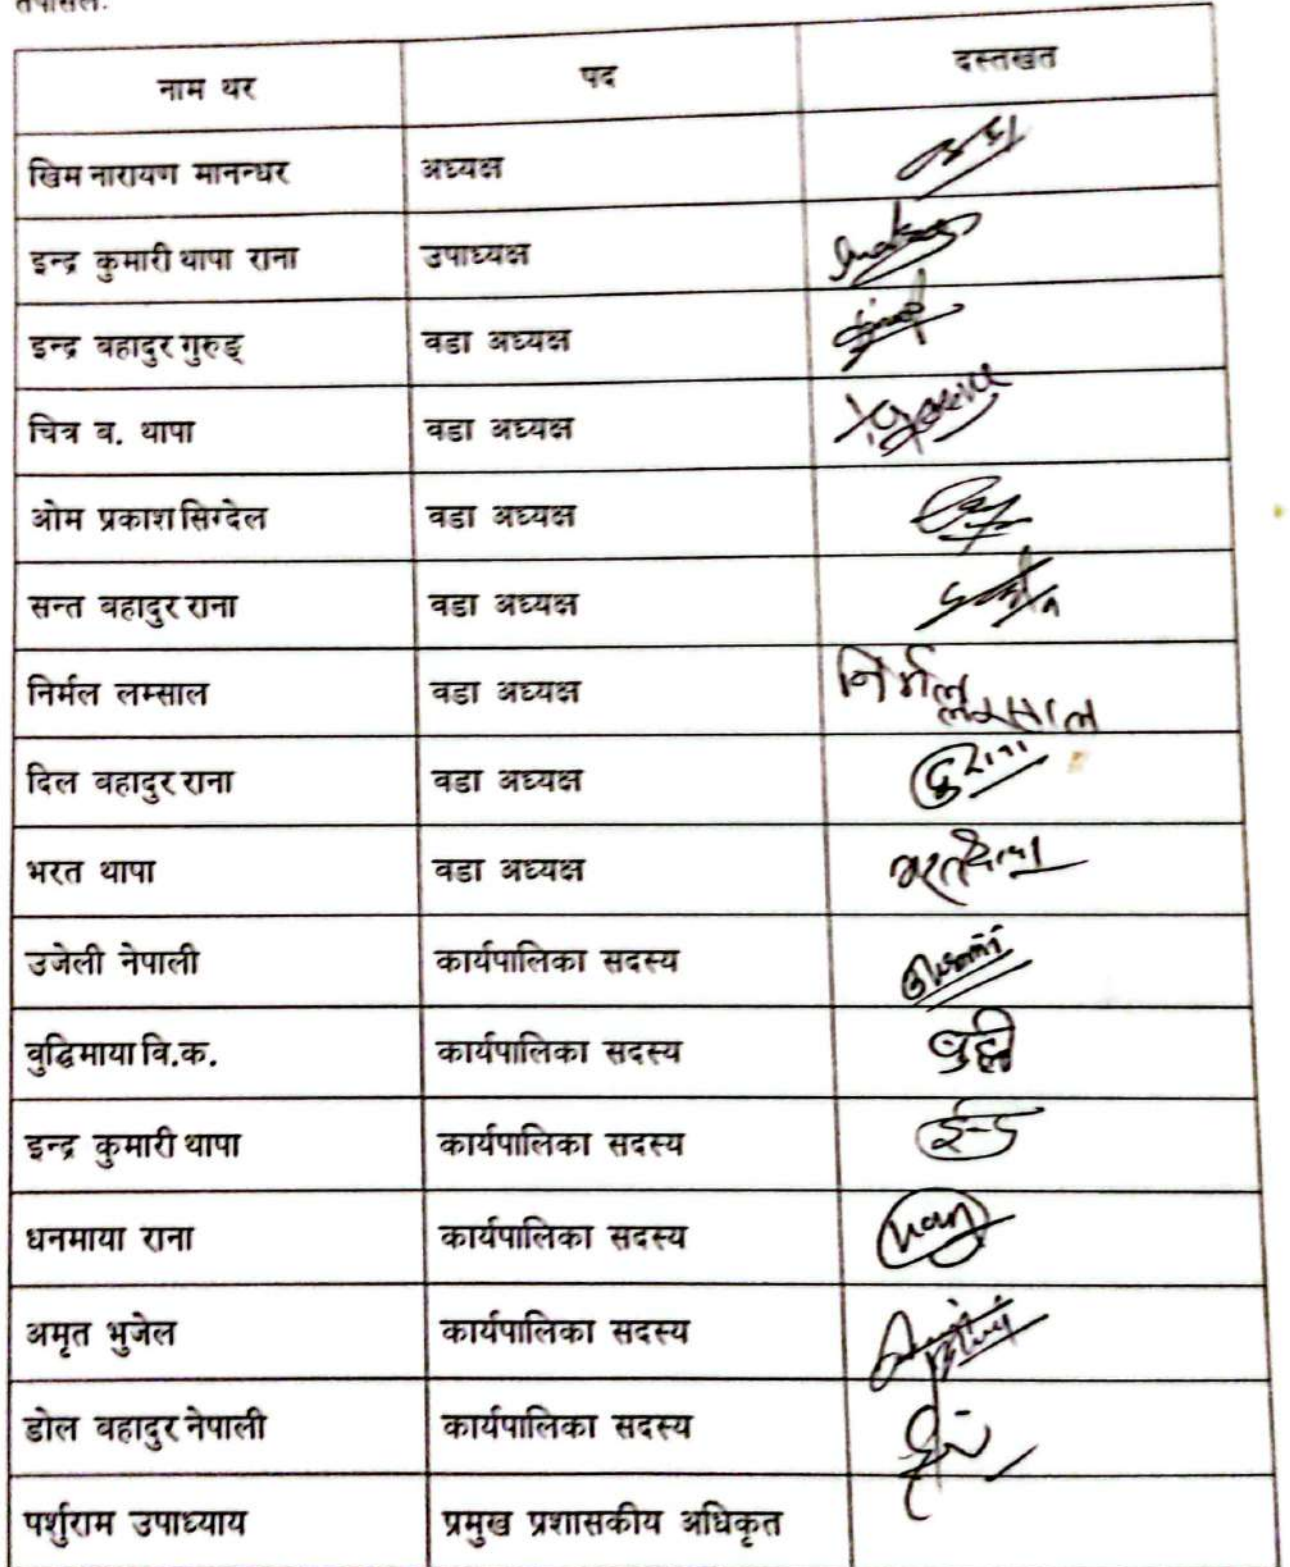 तपासिलः
नाम थर पद दस्तखत
खिम नारायण मानन्धर अध्यक्ष
इन्द्र कुमारी थापा राना उपाध्यक्ष
इन्द्र बहादुर गुरुङ् वडा अध्यक्ष
चित्र ब. थापा वडा अध्यक्ष
ओम प्रकाश सिग्देल वडा अध्यक्ष
सन्त बहादुर राना वडा अध्यक्ष
निर्मल लम्साल वडा अध्यक्ष निर्मल
लम्साल
दिल बहादुर राना वडा अध्यक्ष
भरत थापा वडा अध्यक्ष
उजेली नेपाली कार्यपालिका सदस्य
वुद्धिमाया वि.क. कार्यपालिका सदस्य
इन्द्र कुमारी थापा कार्यपालिका सदस्य
धनमाया राना कार्यपालिका सदस्य
अमृत भुजेल कार्यपालिका सदस्य
डोल बहादुर नेपाली कार्यपालिका सदस्य
पर्शुराम उपाध्याय प्रमुख प्रशासकीय अधिकृत